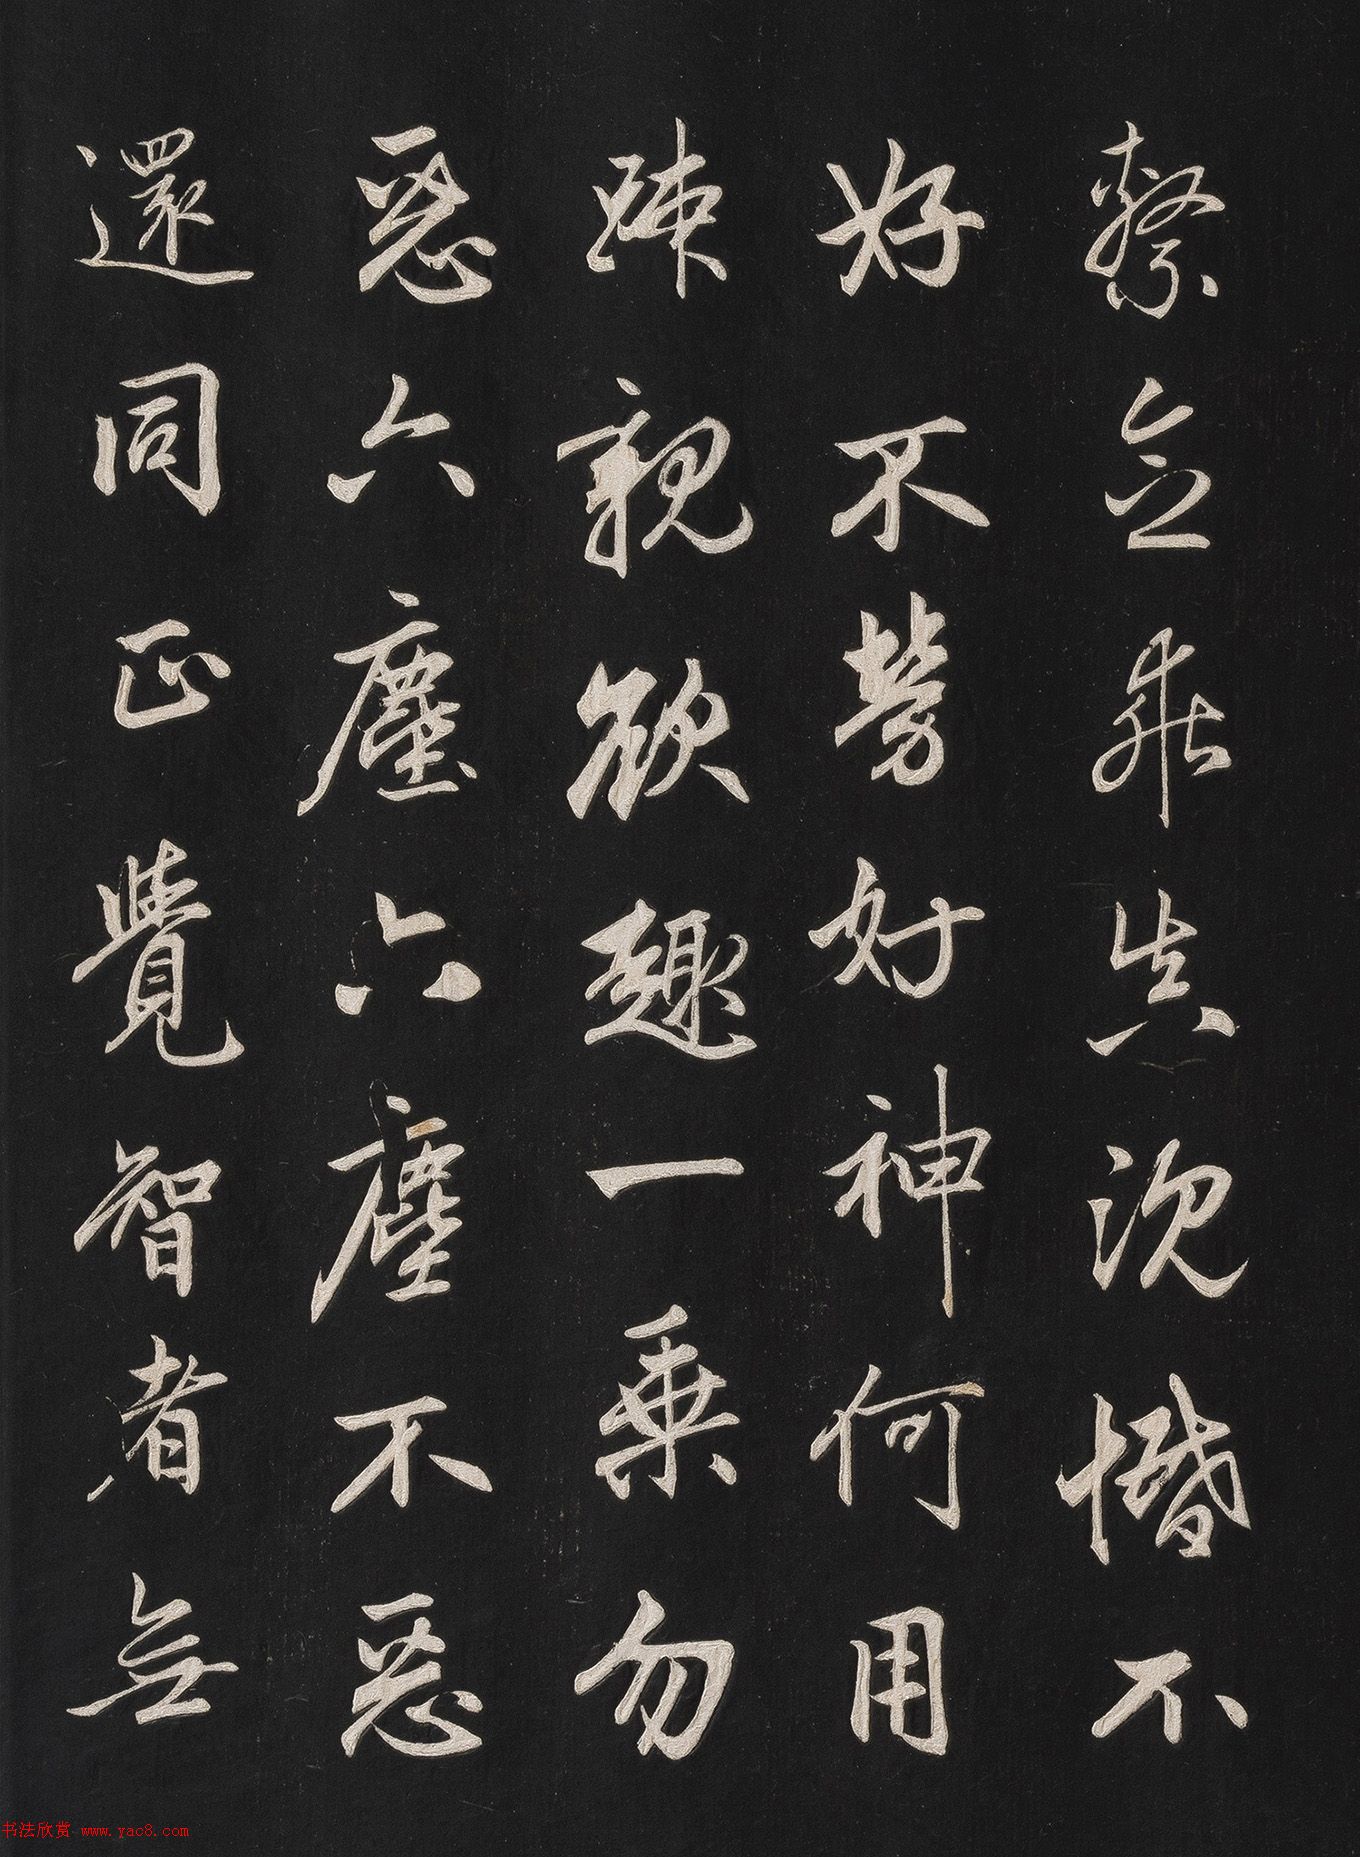 繫念乖真沉惛不
好不勞好神何用
疎親欲趣一乘勿
惡六塵六塵不惡
還同正覺智者無
书法欣赏 www.yac8.com